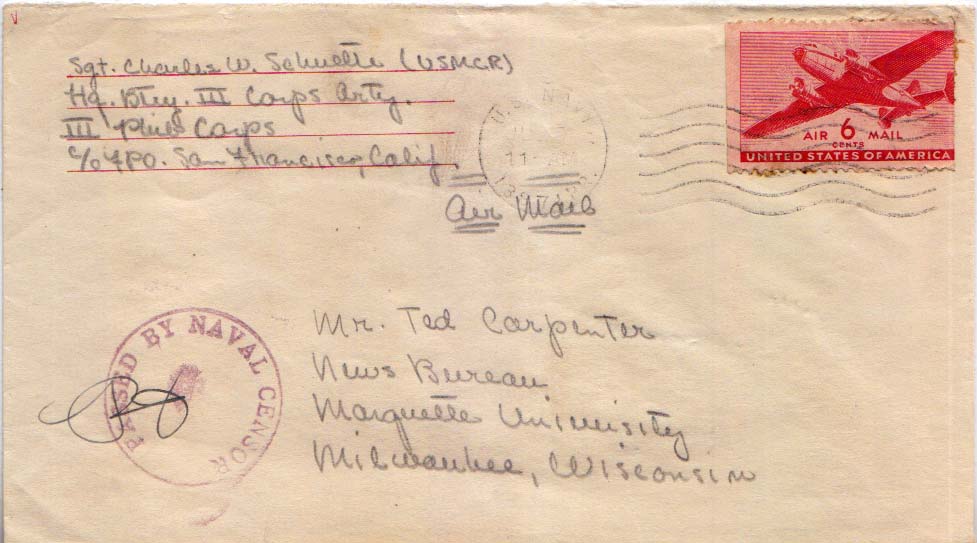 Sgt. Charles W. Schuette (USMCR)
Hq. Btry. III Corps Arty.
III Phib Corps
c/o FPO. San Francisco, Calif.
U.S. NAVY
11 AM
Air Mail
AIR 6 MAIL
CENTS
UNITED STATES OF AMERICA
PASSED BY NAVAL CENSOR
Mr. Ted Carpenter
News Bureau
Marquette University
Milwaukee, Wisconsin